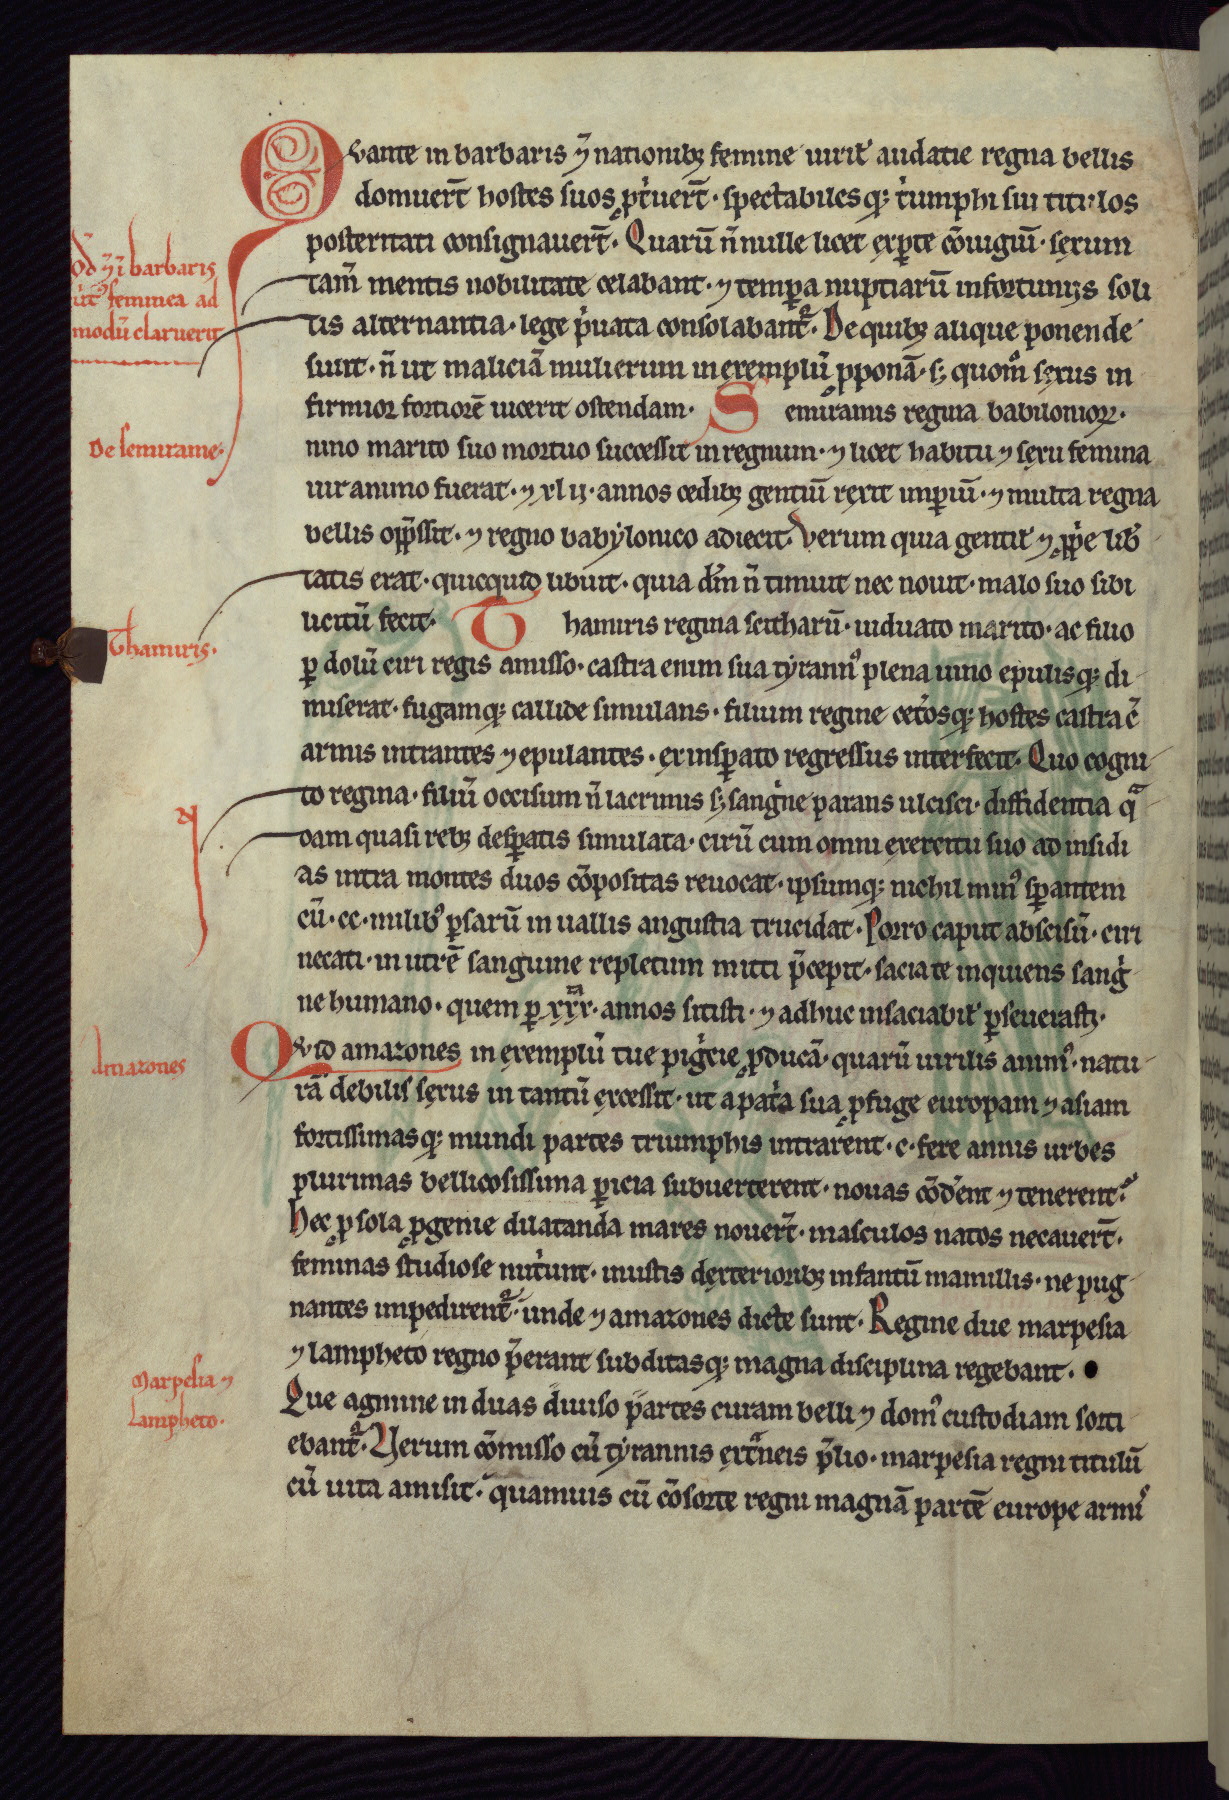 Qvante in barbaris ⁊ nationibꝫ femine uirił audatie regna bellis
domuer̄t hostes suos ꝓt̓uer̄t · spectabilesqꝫ t̓umphi sui titulos
posteritati consignauer̄t · Quarū n̄nulle licet exꝑte cōiugiū · sexum
tam̄ mentis nobilitate celabant · ⁊ temꝑa nuptiarū infortunijs soli
tis alternantia · lege p̓uata consolabant᷑ · De quibꝫ alique ponende
sunt · n̄ ut maliciā mulierum in exemplū ꝓponā · sꝫ quom̊ sexus in
firmior fortiorē uicerit ostendam · Semiramis regina babilonioꝝ ·
nino marito suo mortuo successit in regnum · ⁊ licet habitu ⁊ sexu femina
uir animo fuerat · ⁊ xl ij · annos cedibꝫ gentiū rexit imꝑiū · ⁊ multa regna
bellis opp̄ssit · ⁊ regno babẏlonico adiecit · Verum quia gentił ⁊ ꝓp̓e lib̄
tatis erat · quicquid libuit · quia dm̄ n̄ timuit nec nouit · malo suo sibi
licitū fecit · Thamiris regina scitharū · uiduato marito · ac filio
ꝑ dolū ciri regis amisso · castra enim sua tẏrannꝰ plena uino epulisqꝫ di
miserat · fugamqꝫ callide simulans · filium regine cet̓osqꝫ hostes castra c̄
armis intrantes ⁊ epulantes · ex insꝑato regressus interfecit · Quo cogni
to regina · filiū occisum n̄ lacrimis sꝫ sang̓ne parans ulcisci · diffidentia qᷓ
dam quasi rebꝫ desꝑatis simulata · cirū cum omni exercitu suo ad insidi
as intra montes duos cōpositas reuocat · ipsumqꝫ nichil minꝰ sꝑantem
cū · cc · milibꝰ ꝑsarū in uallis angustia trucidat · Porro caput abscisū · ciri
necati · in utrē sanguine repletum mitti p̄cepit · sacia te inquiens sang̓
ne humano · quem ꝑ xxx · annos sitisti · ⁊ adhuc insaciabił ꝑseuerasti ·
Qvid amazones in exemplū tue pig̓cie ꝓducā · quarū uirilis animꝰ · natu
rā debilis sexus in tantū excessit · ut a pat̓a sua ꝓfuge europam ⁊ asiam
fortissimasqꝫ mundi partes triumphis intrarent · c · fere annis urbes
plurimas bellicosissima ꝑicia subuerterent · nouas cōd̄ent ⁊ tenerent ·
Hec ꝓ sola ꝓgenie dilatanda mares nouer̄t · masculos natos necauer̄t ·
feminas studiose nut̓unt · inustis dexterioribꝫ infantū mamillis · ne pug
nantes impedirent᷑ · unde ⁊ amazones dicte sunt · Regine due marpesia
⁊ lampheto regno p̄erant subditasqꝫ magna disciplina regebant ·
Que agmine in duas diuiso partes curam belli ⁊ domꝰ custodiam sorti
ebant᷑ · Verum cōmisso cū tẏrannis extᷓneis p̄lio · marpesia regni titulū
cū uita amisit · quamuis cū cōsorte regni magnā partē europe armiꝰ
barbaris
femineа ad
modū claruerit
De semirame ·
Thamiris ·
Amazones
Marpesia ⁊
lampheto ·